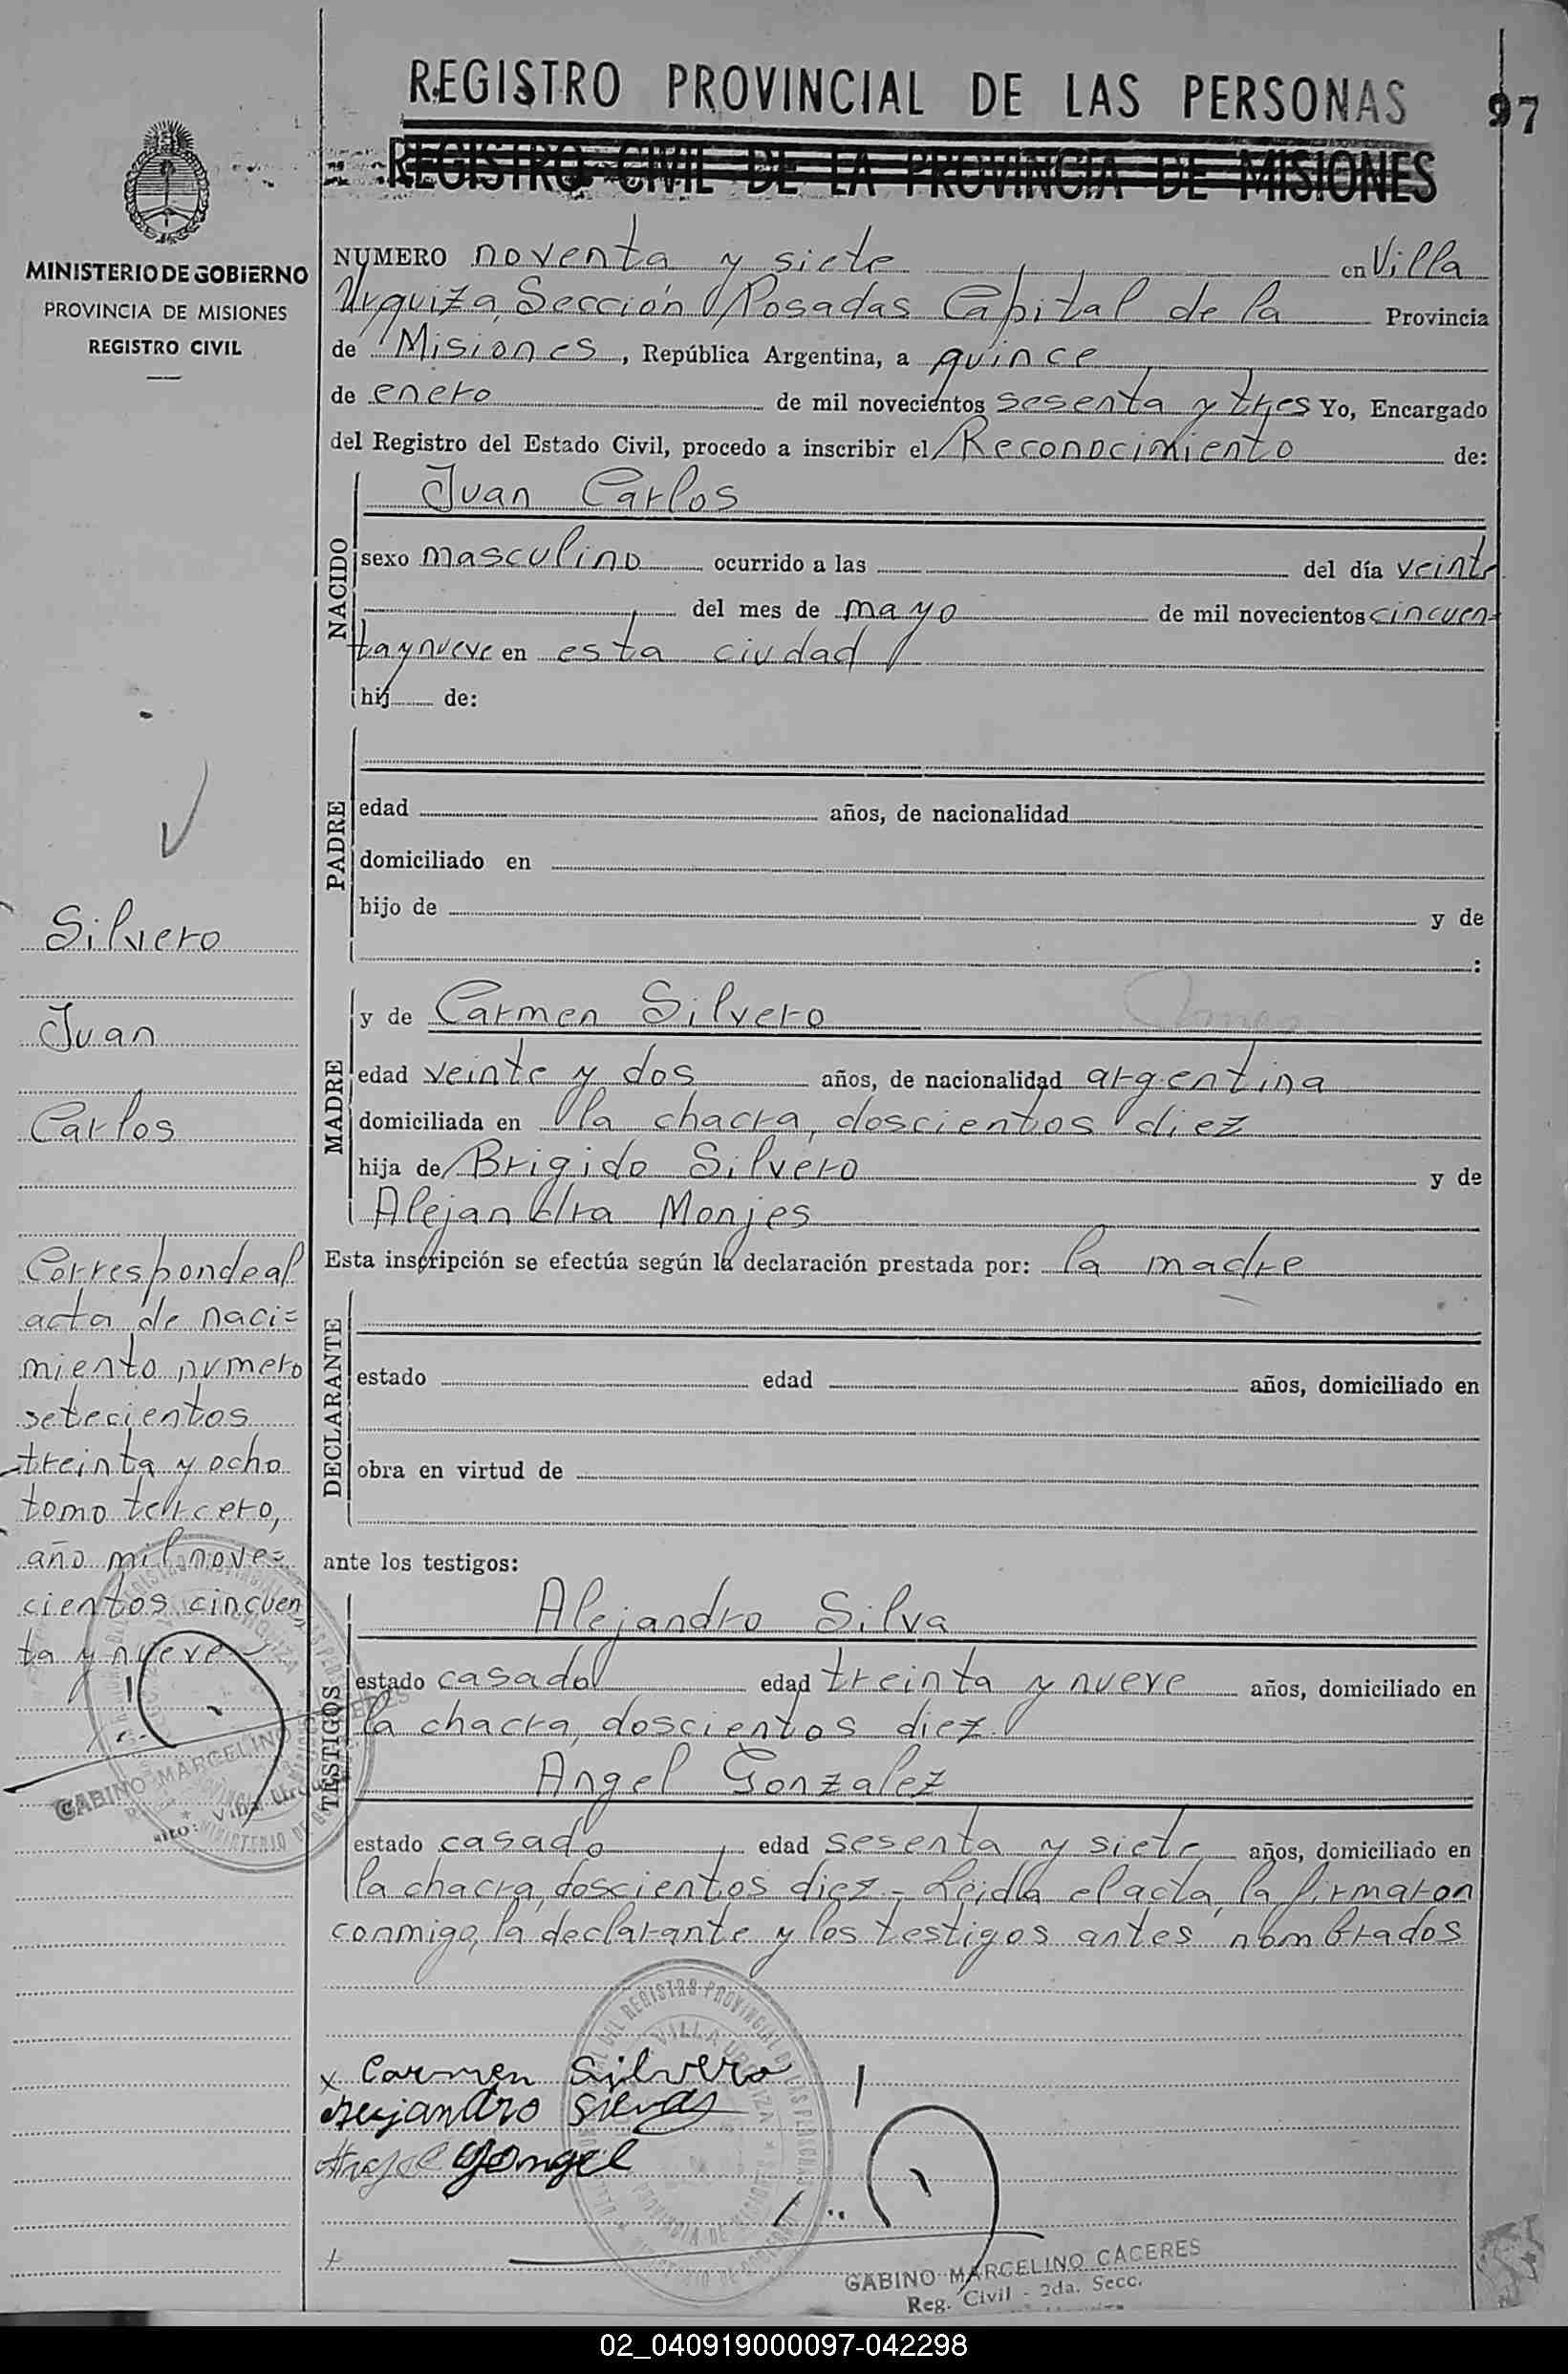 REGISTRO PROVINCIAL DE LAS PERSONAS
97
REGISTRO CIVIL DE LA PROVINCIA DE MISIONES
MINISTERIO DE GOBIERNO
PROVINCIA DE MISIONES
REGISTRO CIVIL
NUMERO noventa y siete en Villa
Urquiza, Sección Posadas Capital de la Provincia
de Misiones, República Argentina, a quince
de enero de mil novecientos sesenta y tres Yo, Encargado
del Registro del Estado Civil, procedo a inscribir el Reconocimiento de:
NACIDO
Juan Carlos
sexo masculino ocurrido a las del día veinte
del mes de mayo de mil novecientos cincuen-
ta y nueve en esta ciudad
hij de:
PADRE
edad años, de nacionalidad
domiciliado en
hijo de y de
:
MADRE
y de Carmen Silvero
edad veinte y dos años, de nacionalidad argentina
domiciliada en la chacra, doscientos diez
hija de Brigido Silvero y de
Alejandra Monjes
Esta inscripción se efectúa según la declaración prestada por: la madre
DECLARANTE
estado edad años, domiciliado en
obra en virtud de
ante los testigos:
TESTIGOS
Alejandro Silva
estado casado edad treinta y nueve años, domiciliado en
la chacra, doscientos diez.
Angel Gonzalez
estado casado edad sesenta y siete años, domiciliado en
la chacra, doscientos diez - Leida el acta, la firmaron
conmigo, la declarante y los testigos antes nombrados
Silvero
Juan
Carlos
Corresponde al
acta de naci=
miento numero
setecientos
treinta y ocho
tomo tercero,
año mil nove=
cientos cincuen
ta y nueve
GABINO MARCELINO
x Carmen Silvero
Alejandro Silva
GABINO MARCELINO CACERES
Reg. Civil - 2da. Secc.
02_040919000097-042298